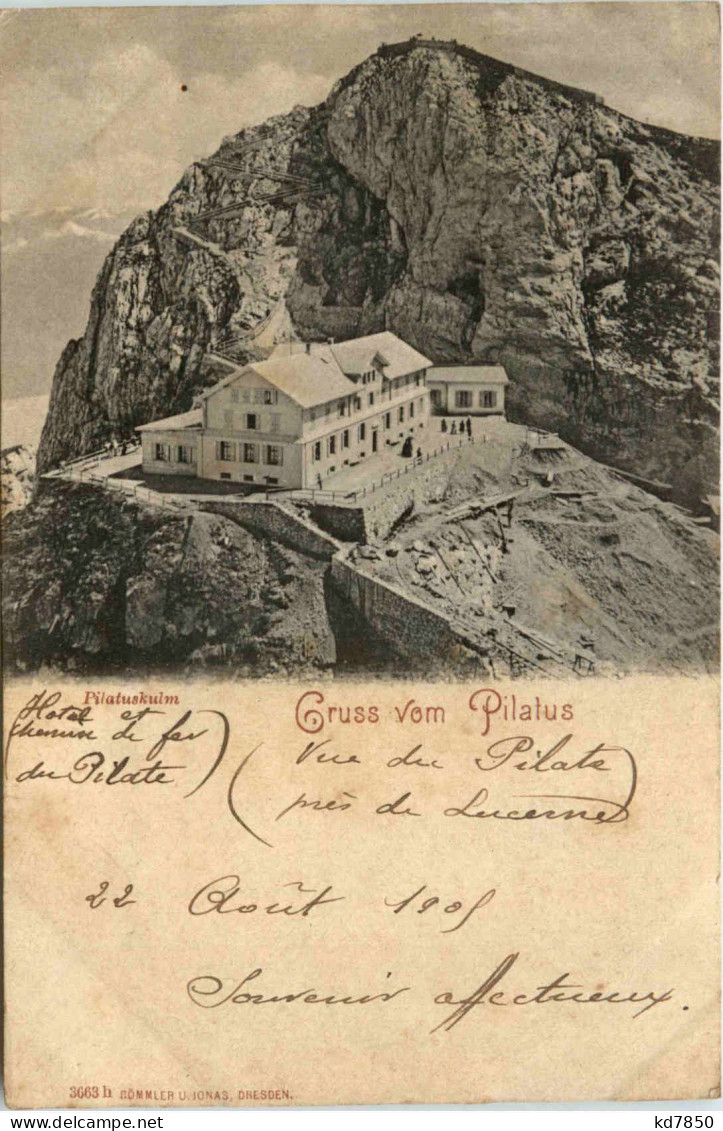 Pilatuskulm
Gruss vom Pilatus
(Hotel et
chemin de fer
du Pilate)
(Vue du Pilate
près de Lucerne)
22 Août 1905
Souvenir affectueux.
3663 h RÖMMLER U. JONAS, DRESDEN.
kd7850